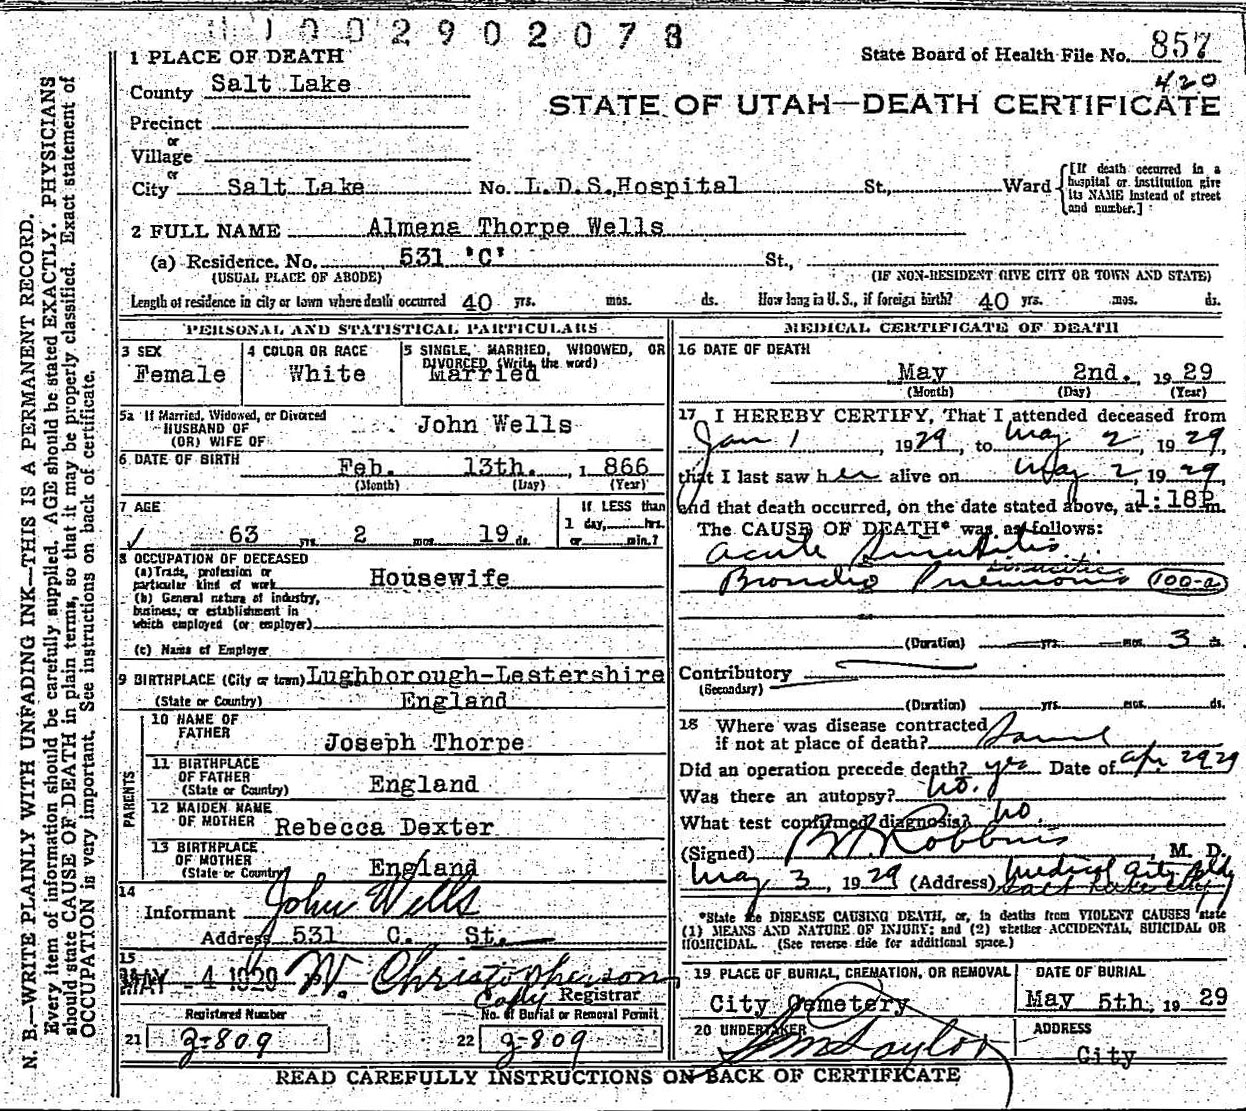 1002902078
1 PLACE OF DEATH
State Board of Health File No. 857
County Salt Lake
420
STATE OF UTAH—DEATH CERTIFICATE
Precinct
or
Village
or
City Salt Lake No. L.D.S.Hospital St., Ward
[If death occurred in a hospital or institution give its NAME instead of street and number.]
2 FULL NAME Almena Thorpe Wells
(a) Residence. No. 531 'C' St.,
(USUAL PLACE OF ABODE) (IF NON-RESIDENT GIVE CITY OR TOWN AND STATE)
Length of residence in city or town where death occurred 40 yrs. mos. ds. How long in U. S., if foreign birth? 40 yrs. mos. ds.
PERSONAL AND STATISTICAL PARTICULARS
3 SEX
Female
4 COLOR OR RACE
White
5 SINGLE, MARRIED, WIDOWED, OR
DIVORCED (Write the word)
Married
5a If Married, Widowed, or Divorced
HUSBAND OF
(OR) WIFE OF
John Wells
6 DATE OF BIRTH
Feb. 13th. , 1 866
(Month) (Day) (Year)
7 AGE
63 yrs. 2 mos. 19 ds.
If LESS than
1 day, hrs.
or min.?
8 OCCUPATION OF DECEASED
(a) Trade, profession or
particular kind of work Housewife
(b) General nature of industry,
business, or establishment in
which employed (or employer)
(c) Name of Employer
9 BIRTHPLACE (City or town) Lughborough-Lestershire
(State or Country) England
PARENTS
10 NAME OF
FATHER
Joseph Thorpe
11 BIRTHPLACE
OF FATHER
(State or Country) England
12 MAIDEN NAME
OF MOTHER Rebecca Dexter
13 BIRTHPLACE
OF MOTHER
(State or Country) England
14
Informant John Wells
Address 531 C. St.
15
MAY - 4 1929 W. Christopherson
Copy Registrar
Registered Number
No. of Burial or Removal Permit
21 2-809
22 2-809
MEDICAL CERTIFICATE OF DEATH
16 DATE OF DEATH
May 2nd. 19 29
(Month) (Day) (Year)
17 I HEREBY CERTIFY, That I attended deceased from
Jan 1 , 1929, to May 2 , 19 29
that I last saw her alive on May 2, 19 29
and that death occurred, on the date stated above, at 1:18P m.
The CAUSE OF DEATH* was as follows:
Acute Sinusitis
Broncho Pneumonia 100-a
(Duration) yrs. mos. 3 ds
Contributory
(Secondary)
(Duration) yrs. mos. ds.
18 Where was disease contracted
if not at place of death?
Did an operation precede death? yes Date of Apr 29 29
Was there an autopsy? no.
What test confirmed diagnosis? no.
(Signed) Robbins M. D.
May 3 , 19 29 (Address) Medical City Bldg
Salt Lake City
*State the DISEASE CAUSING DEATH, or, in deaths from VIOLENT CAUSES state
(1) MEANS AND NATURE OF INJURY; and (2) whether ACCIDENTAL, SUICIDAL OR
HOMICIDAL. (See reverse side for additional space.)
19 PLACE OF BURIAL, CREMATION, OR REMOVAL
City Cemetery
DATE OF BURIAL
May 5th, 19 29
20 UNDERTAKER
Taylor
ADDRESS
City
READ CAREFULLY INSTRUCTIONS ON BACK OF CERTIFICATE
N. B.—WRITE PLAINLY WITH UNFADING INK—THIS IS A PERMANENT RECORD.
Every item of information should be carefully supplied. AGE should be stated EXACTLY. PHYSICIANS
should state CAUSE OF DEATH in plain terms, so that it may be properly classified. Exact statement of
OCCUPATION is very important. See instructions on back of certificate.